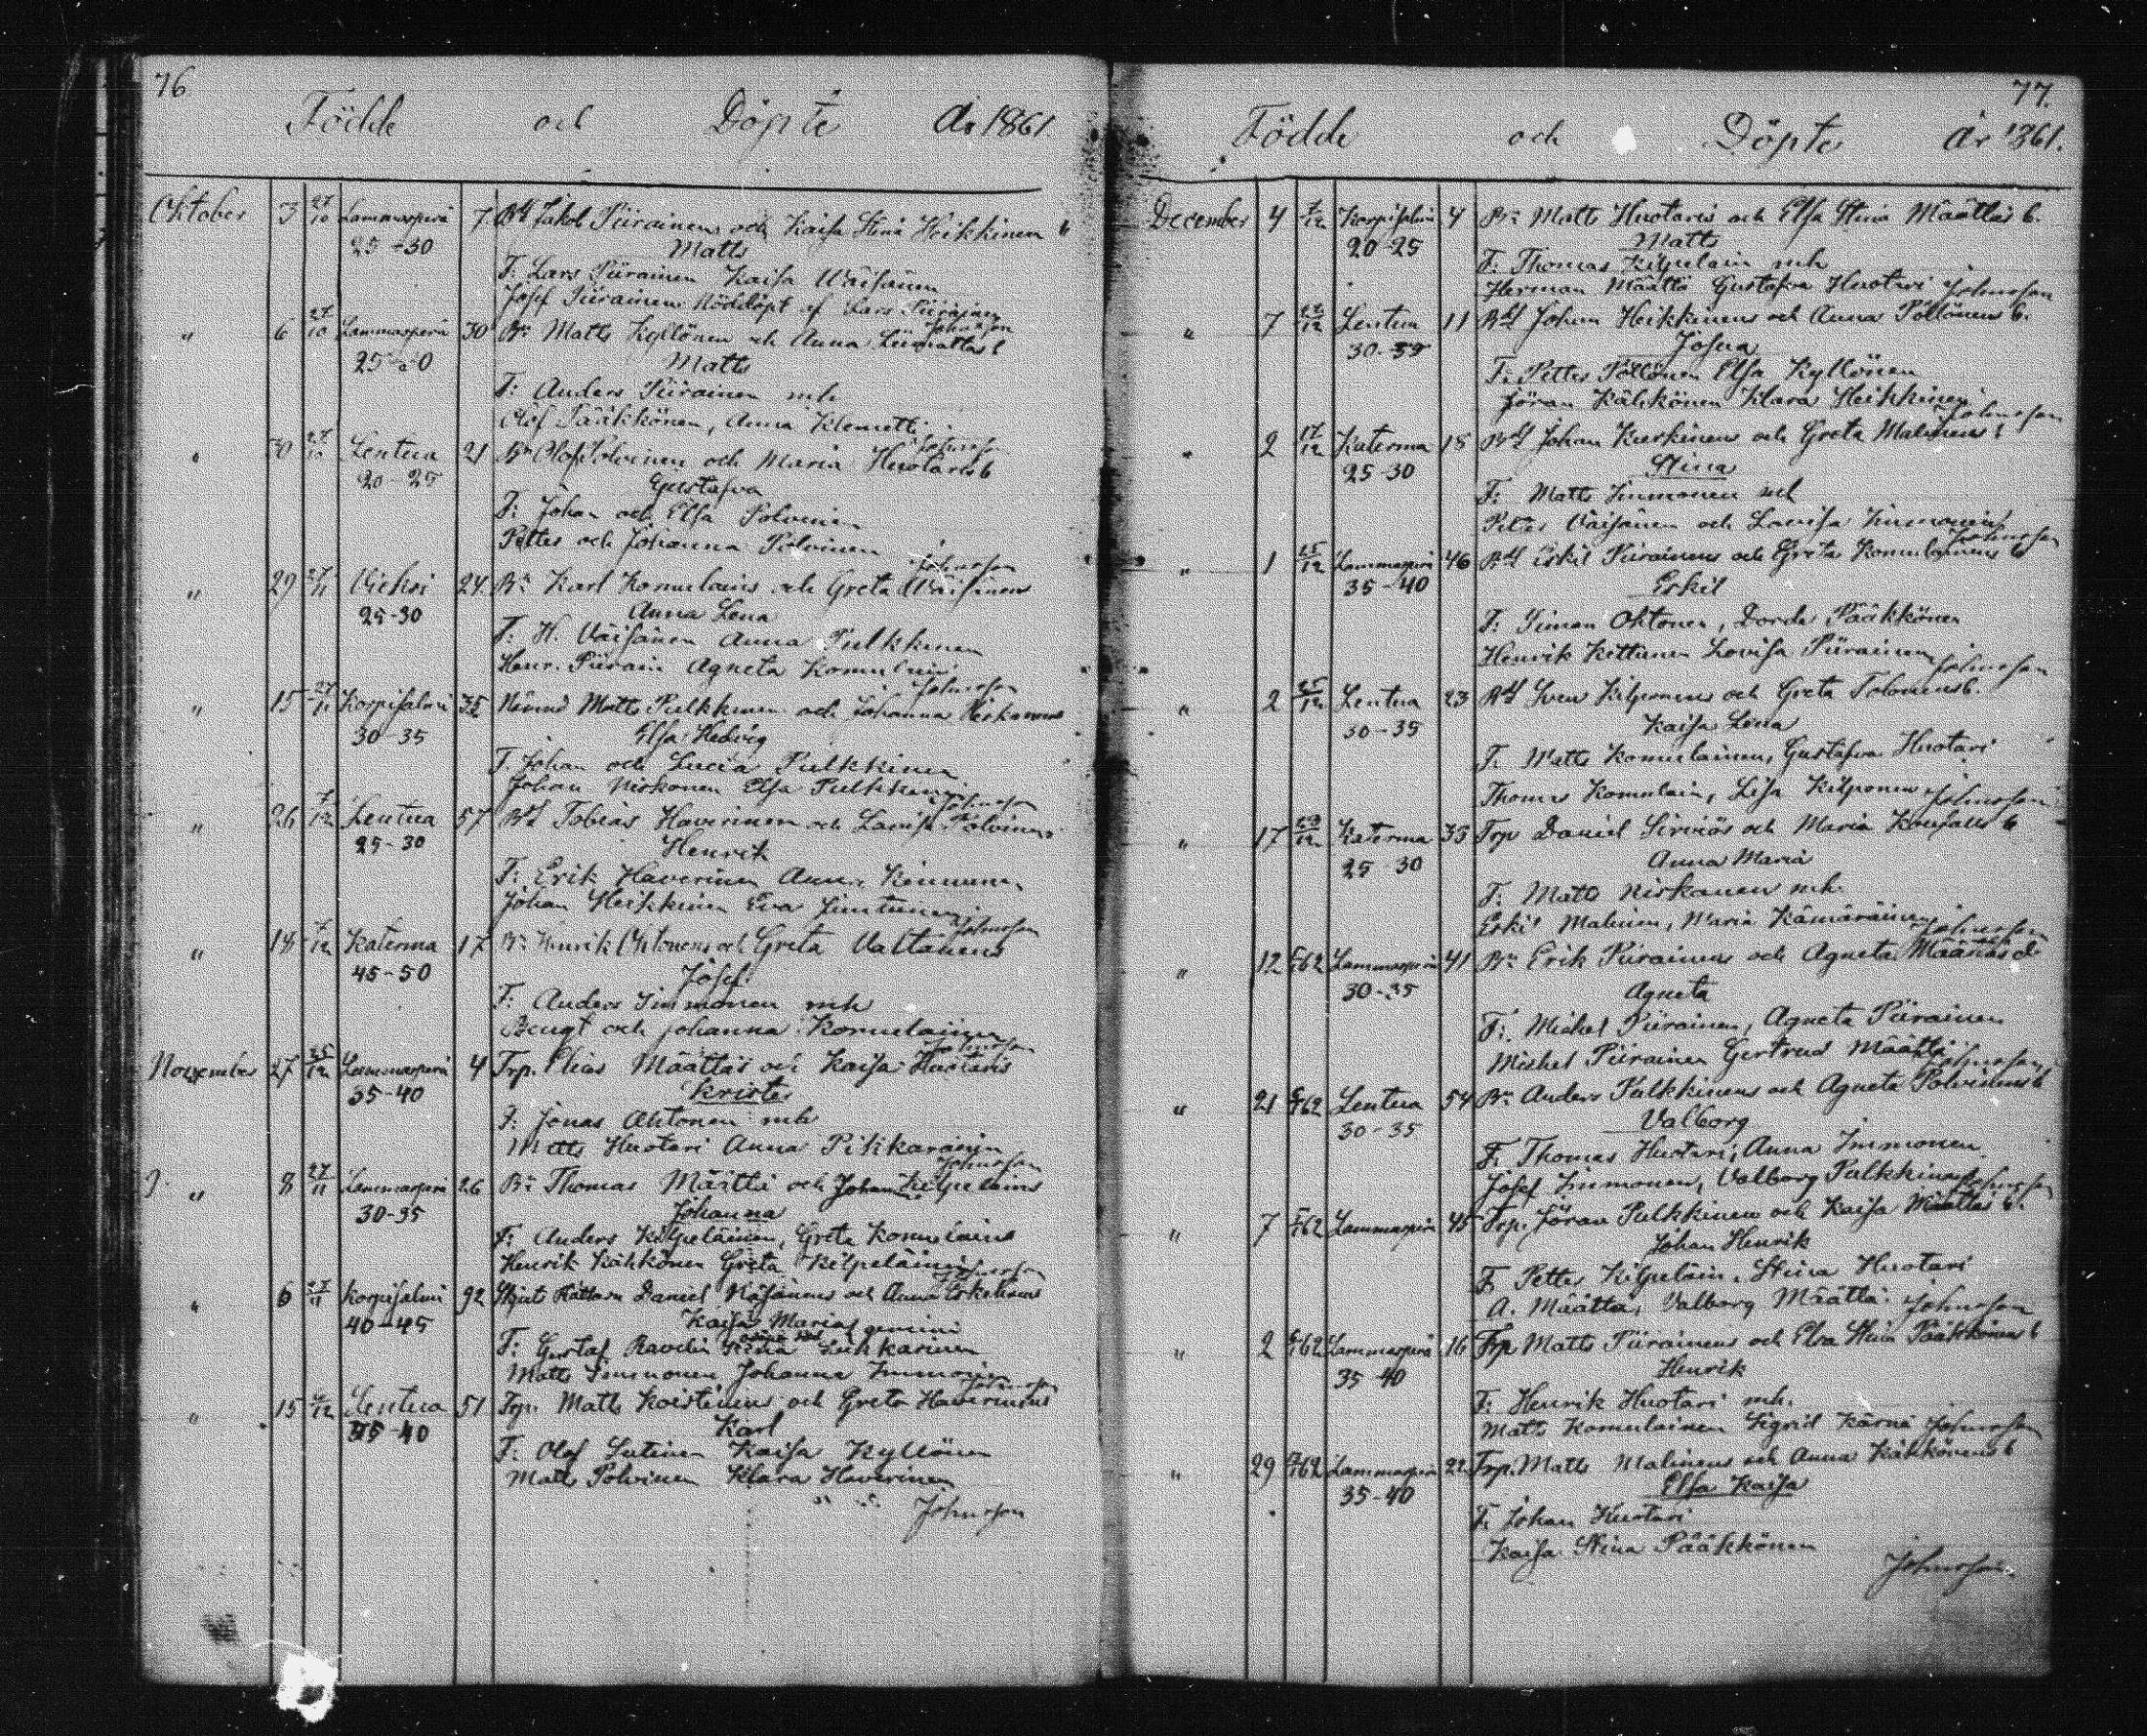 76
Födde och Döpte År 1861
Oktober 3 27/10 Lammasperä 7 Bd Jakob Piirainens och Kaisa Stina Heikkinen
25-30 Matts
F: Lars Piirainen Kaisa Wäisänen
Josef Piirainen Nöddöpt af Lars Piirainen
Johnsson
" 6 27/10 Lammasperä 30 Bn Matts Kyllönen och Anna
Matts
F: Anders Piirainen mh
Olof Pääkkönen, Anna Klemetti
Johnsson
" 30 Lentua 21 Bn Olof Polvinen och Maria Huotaris b
20-25 Gustafva
F: Johan och Elsa Polvinen
Petter och Johanna Polvinen
Johnsson
" 29 Vieksi 24 Bn Karl Komulains och Greta Wäisänens
25-30 Anna Lena
F: H. Väisänen Anna Pulkkinen
Henr. Piirain Agneta Komulain
Johnsson
" 15 Korpisalmi 35 Matts Pulkkinen och Johanna
30-35 Elsa Hedvig
F. Johan och Lucia Pulkkinen
Johan Niskanen Elsa Pulkkinen
Johnsson
" 26 7/12 Lentua 57 Bd Tobias Haverinen och Lovisa Polvinens
25-30 Henrik
F: Erik Haverinen Anna Kinnunen
Johan Heikkinen Eva Juntunen
Johnsson
" 18 7/12 Katerma 17 Bn Henrik Ohtonens och Greta Valtanens
45-50 Josef
F: Anders Immonen mh
Bengt och Johanna Komulainen
Johnsson
November 27 25/12 Lammasperä 4 Trp. Elias Määttäs och Kaisa Huotaris
35-40 Krister
F: Jonas Ahtonen mh
Matts Huotari Anna Pikkarainen
Johnsson
" 8 27/11 Lammasperä 26 Bn Thomas Määttä och Johanna Kilpeläins
30-35 Johanna
F: Anders Kilpeläinen, Greta Komulains
Henrik Kähkönen Greta Kilpeläinen
Johnsson
" 6 27/11 Korpisalmi 92 Daniel Väisänens och Anna
40-45 Kaisa Maria gemini
F: Gustaf Ravelin Stina Luhkarinen
Matts Immonen Johanna Immonen
Johnsson
" 15 Lentua 51 Trp. Matts Koistinens och Greta Haverinens
35-40 Karl
F: Olof Lutinen Kaisa Kyllönen
Matts Polvinen Klara Haverinen
Johnsson
77.
Födde och Döpte år 1861.
December 4 7/12 Korpisalmi 4 Bn Matts Huotaris och Elsa Stina Määttäs b.
20-25 Matts
F: Thomas Kilpeläin mh
Herman Määttä Gustafva Huotari Johnsson
" 7 22/12 Lentua 11 Bd Johan Heikkinens och Anna Pöllönens b.
30-35 Josua
F: Petter Pöllönen Elsa Kyllönen
Jöran Kähkönen Klara Heikkinen
Johnsson
" 2 17/12 Katerma 18 Bd Johan Kurkinens och Greta Malinens
25-30 Stina
F: Matts Immonen mh
Peter Väisänen och Lovisa Immonen
Johnsson
" 1 25/12 Lammasperä 46 Bd Eskil Piirainens och Greta Komulainens b
35-40 Eskil
F: Simon Ohtonen, Dorde Pääkkönen
Henrik Kettunen Lovisa Piirainen Johnsson
" 2 25/12 Lentua 23 Bd Sven Kilponens och Greta Tolonens b.
30-35 Kaisa Lena
F. Matts Komulainen, Gustafva Huotari
Thomas Komulain, Lisa Kilponen Johnsson
" 17 29/12 Katerma 33 Trp Daniel Sirviös och Maria b
25-30 Anna Maria
F. Matts Niskanen mh.
Eskil Malinen, Maria Kämäräinen Johnsson
" 12 62 Lammasperä 41 Bn Erik Piirainens och Agneta Määttäs d.
30-35 Agneta
F: Mickel Piirainen, Agneta Piirainen
Mickel Piirainen Gertrud Määttä Johnsson
" 21 62 Lentua 54 Bn Anders Pulkkinens och Agneta Polvinens b
30-35 Valborg
F: Thomas Huotari, Anna Immonen
Josef Immonen, Valborg Pulkkinen Johnsson
" 7 62 Lammasperä 45 Trp. Jöran Pulkkinen och Kaisa Määttäs b.
Johan Henrik
F Petter Kilpeläin. Stina Huotari
A. Määttä, Valborg Määttä. Johnsson
" 2 62 Lammasperä 16 Trp Matts Piirainens och Elsa Stina Pääkkönens b
35-40 Henrik
F: Henrik Huotari mh.
Matts Komulainen Sigrid Kärnä Johnsson
" 29 62 Lammasperä 22 Trp. Matts Malinens och Anna Kähkönens b
35-40 Elsa Kaisa
F. Johan Huotari
Kaisa Stina Pääkkönen
Johnsson.